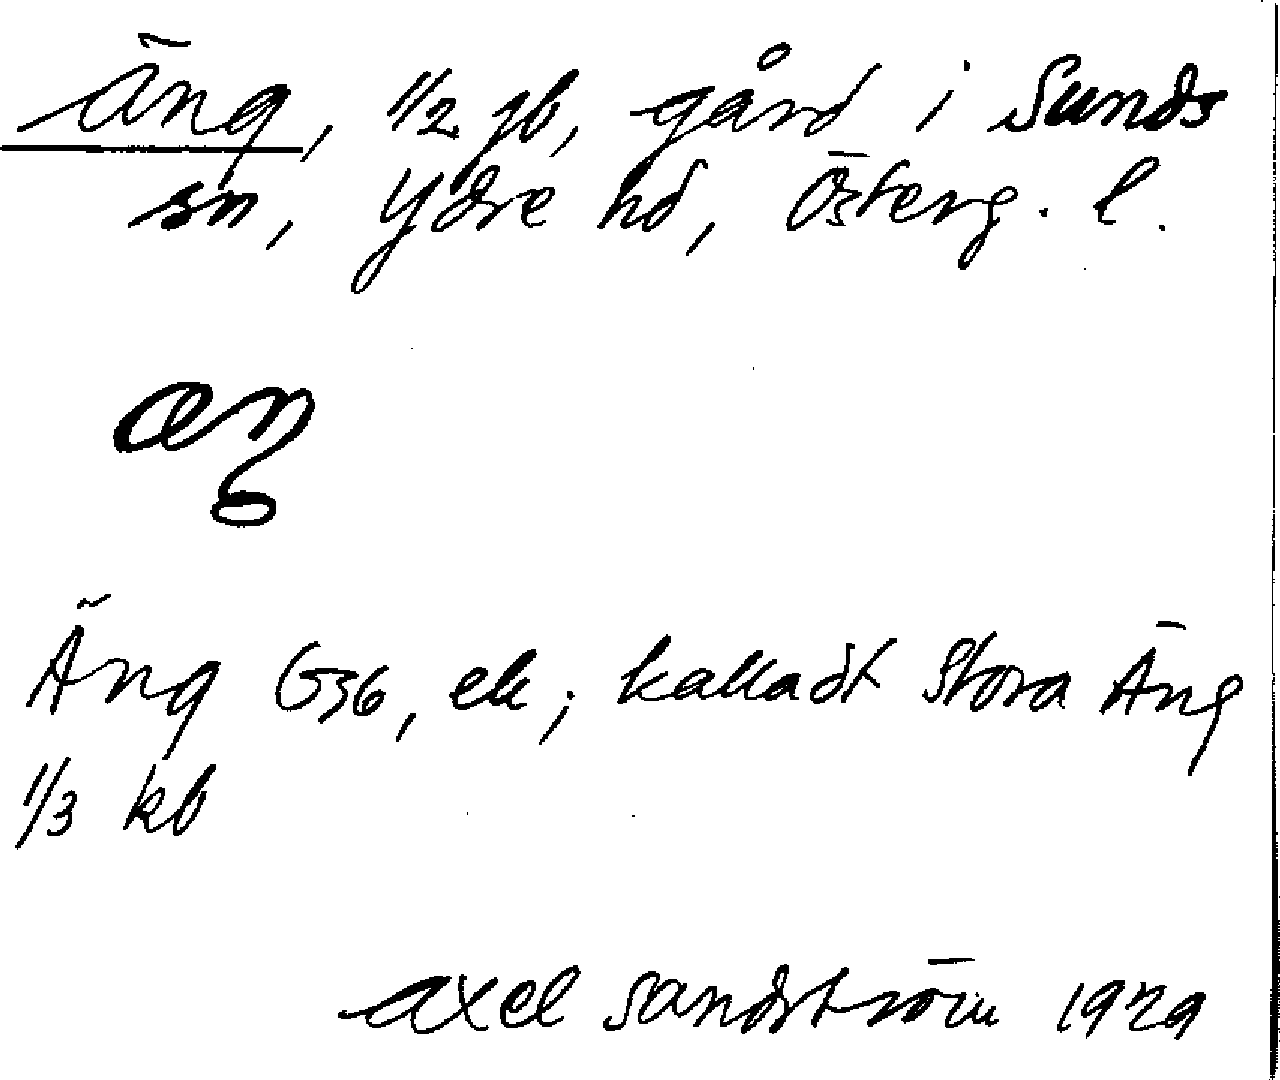 Äng, 1/2 gb, gård i Sunds
sn, Ydre hd, Österg. l.
æŋ
Äng G36, ek; kalladt Stora Äng
1/3 kb
Axel Sandström 1929